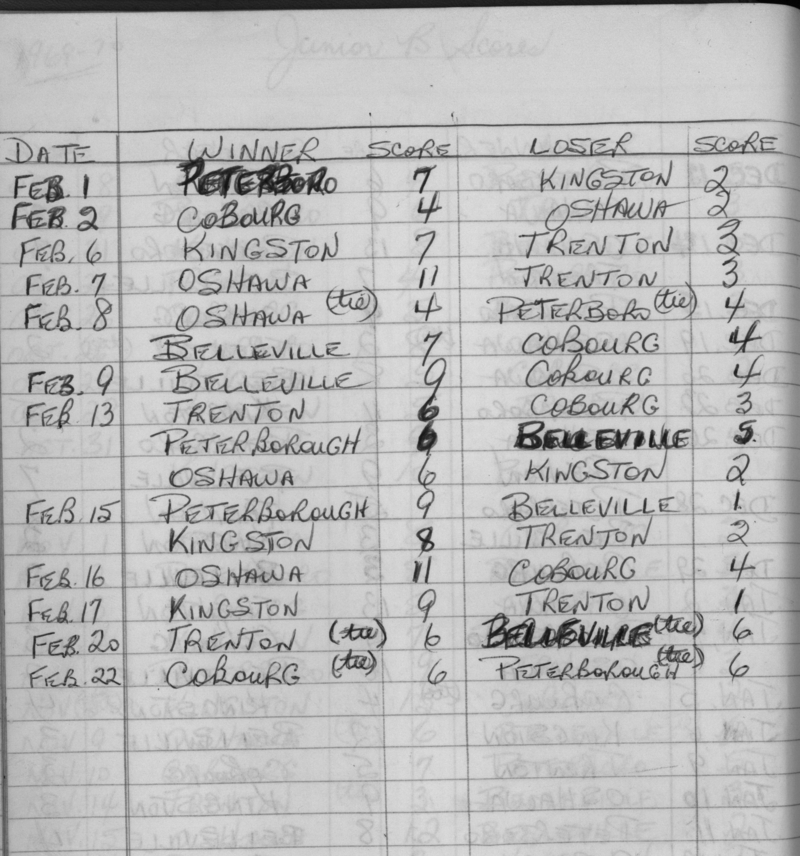 1969-70 Junior B Scores
DATE WINNER SCORE LOSER SCORE
FEB. 1 PETERBORO 7 KINGSTON 2
FEB. 2 COBOURG 4 OSHAWA 2
FEB. 6 KINGSTON 7 TRENTON
FEB. 7 OSHAWA 11 TRENTON 3
FEB. 8 OSHAWA (tie) 4 PETERBORO (tie) 4
BELLEVILLE 7 COBOURG 4
FEB. 9 BELLEVILLE 9 COBOURG 4
FEB. 13 TRENTON 6 COBOURG 3
PETERBOROUGH 6 BELLEVILLE 5
OSHAWA 6 KINGSTON 2
FEB. 15 PETERBOROUGH 9 BELLEVILLE 1
KINGSTON 8 TRENTON 2
FEB. 16 OSHAWA 11 COBOURG 4
FEB. 17 KINGSTON 9 TRENTON 1
FEB. 20 TRENTON (tie) 6 BELLEVILLE (tie) 6
FEB. 22 COBOURG (tie) 6 PETERBOROUGH (tie) 6